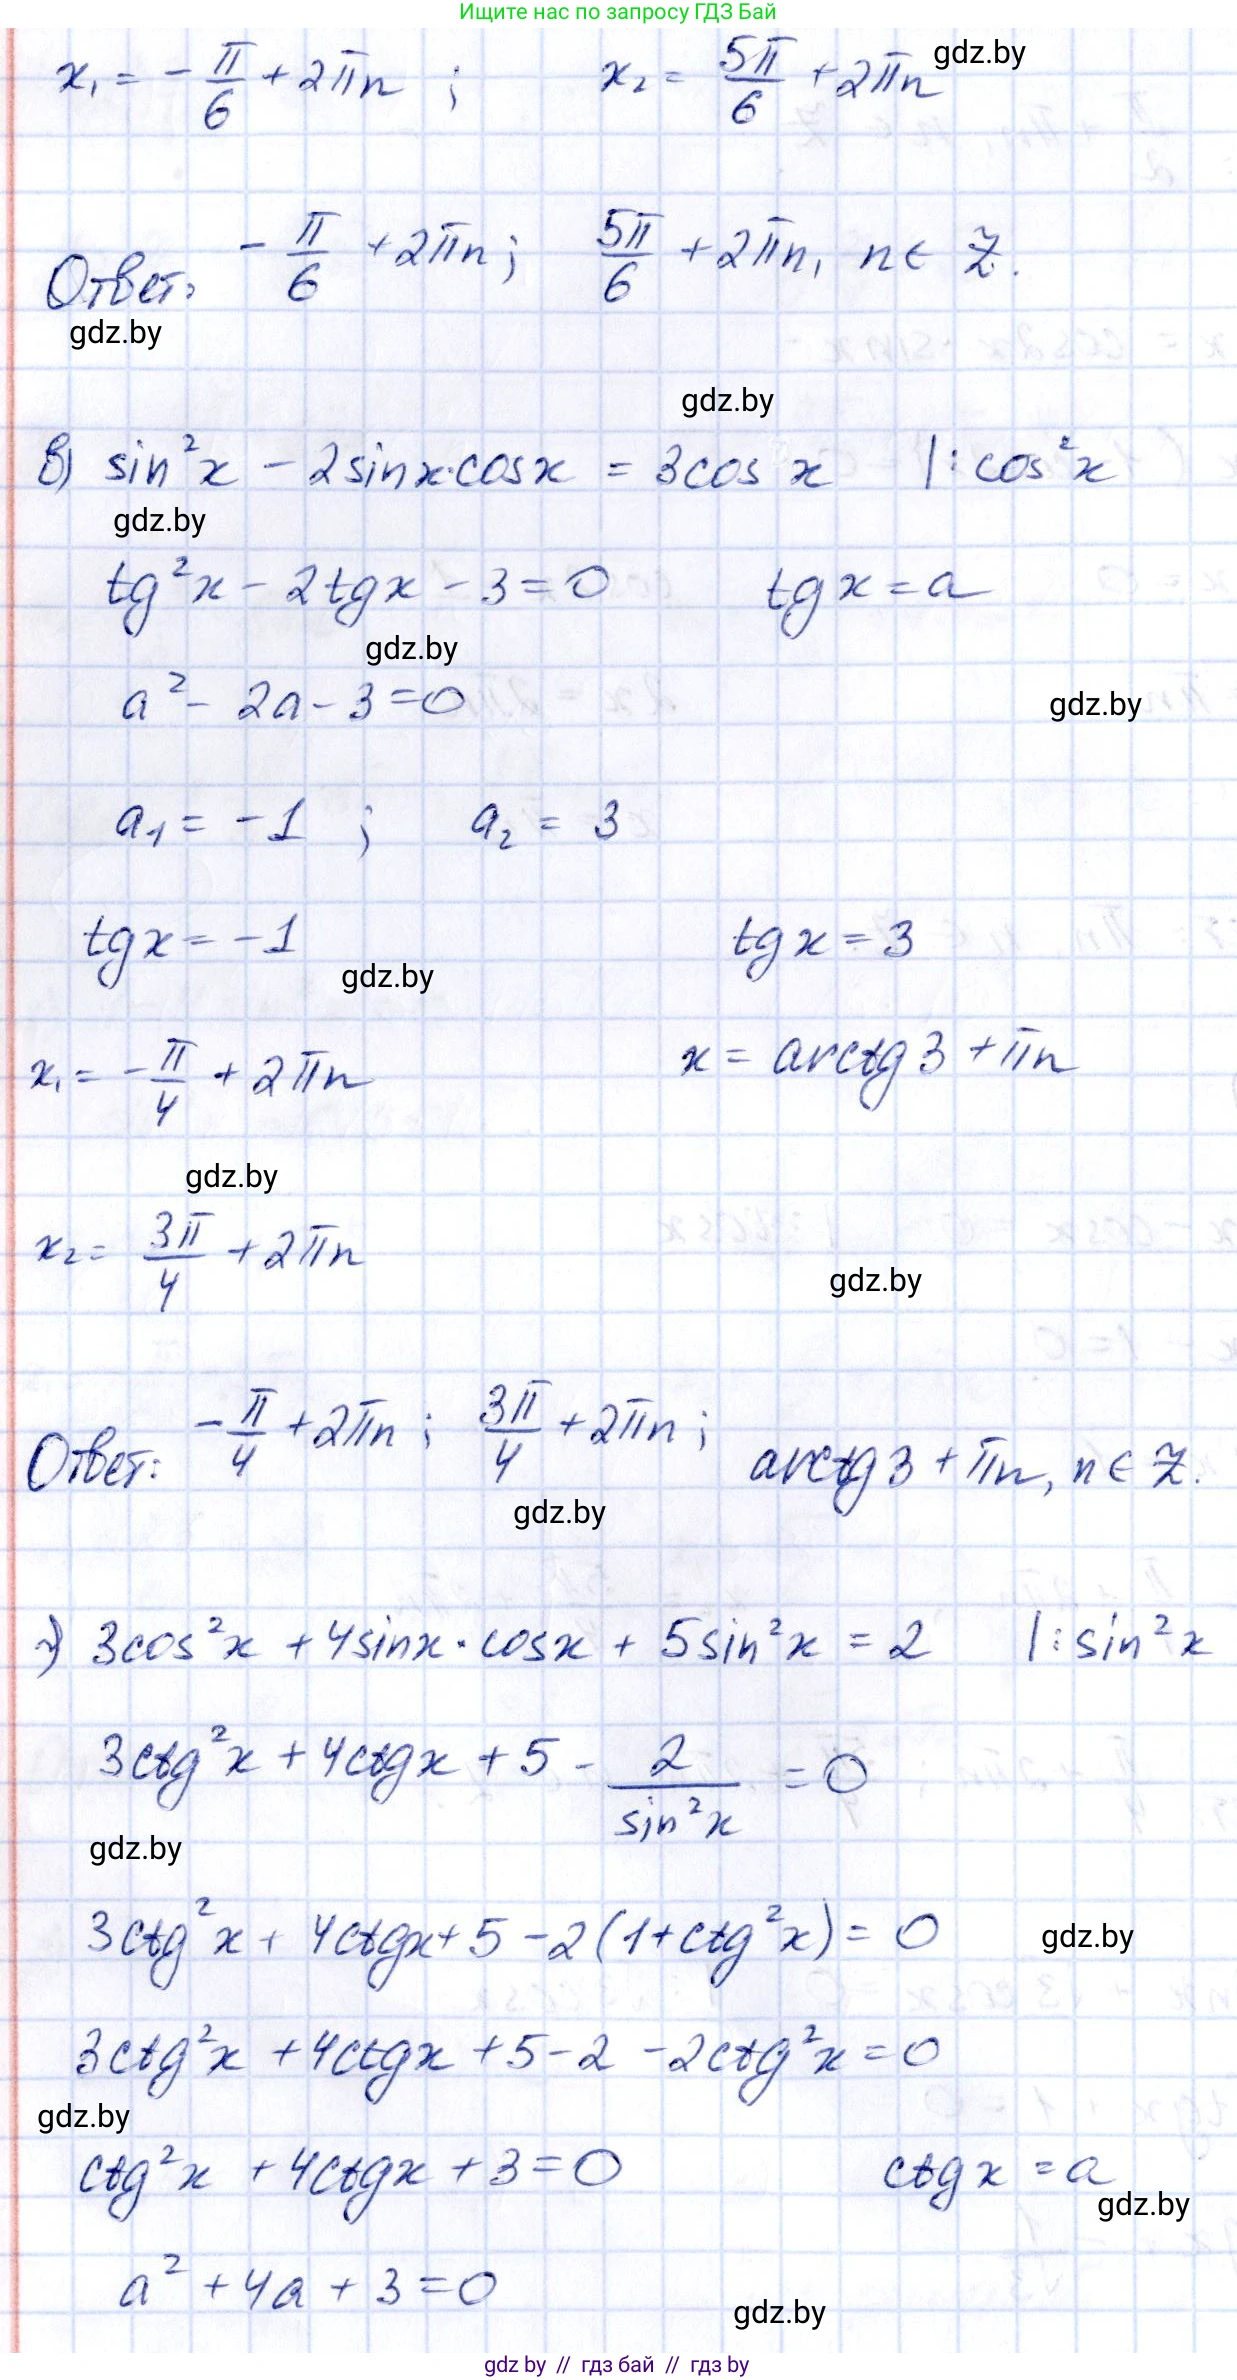 Ищите нас по запросу ГДЗ Бай
x₁ = -π/6 + 2πn ; x₂ = 5π/6 + 2πn gdz.by
Ответ: -π/6 + 2πn; 5π/6 + 2πn, n ∈ Z.
gdz.by
gdz.by
в) sin²x - 2sinx·cosx = 3cos x |: cos²x
gdz.by
tg²x - 2tgx - 3 = 0 tgx = a
gdz.by
a² - 2a - 3 = 0 gdz.by
a₁ = -1 ; a₂ = 3
tgx = -1 tgx = 3
gdz.by
x₁ = -π/4 + 2πn x = arctg3 + πn
gdz.by
x₂ = 3π/4 + 2πn
gdz.by
Ответ: -π/4 + 2πn; 3π/4 + 2πn; arctg3 + πn, n ∈ Z.
gdz.by
г) 3cos²x + 4sinx·cosx + 5sin²x = 2 |: sin²x
3ctg²x + 4ctgx + 5 - 2/sin²x = 0
gdz.by
3ctg²x + 4ctgx + 5 - 2(1 + ctg²x) = 0 gdz.by
3ctg²x + 4ctgx + 5 - 2 - 2ctg²x = 0
gdz.by
ctg²x + 4ctgx + 3 = 0 ctgx = a
gdz.by
a² + 4a + 3 = 0
gdz.by
gdz by // гдз бай // gdz by